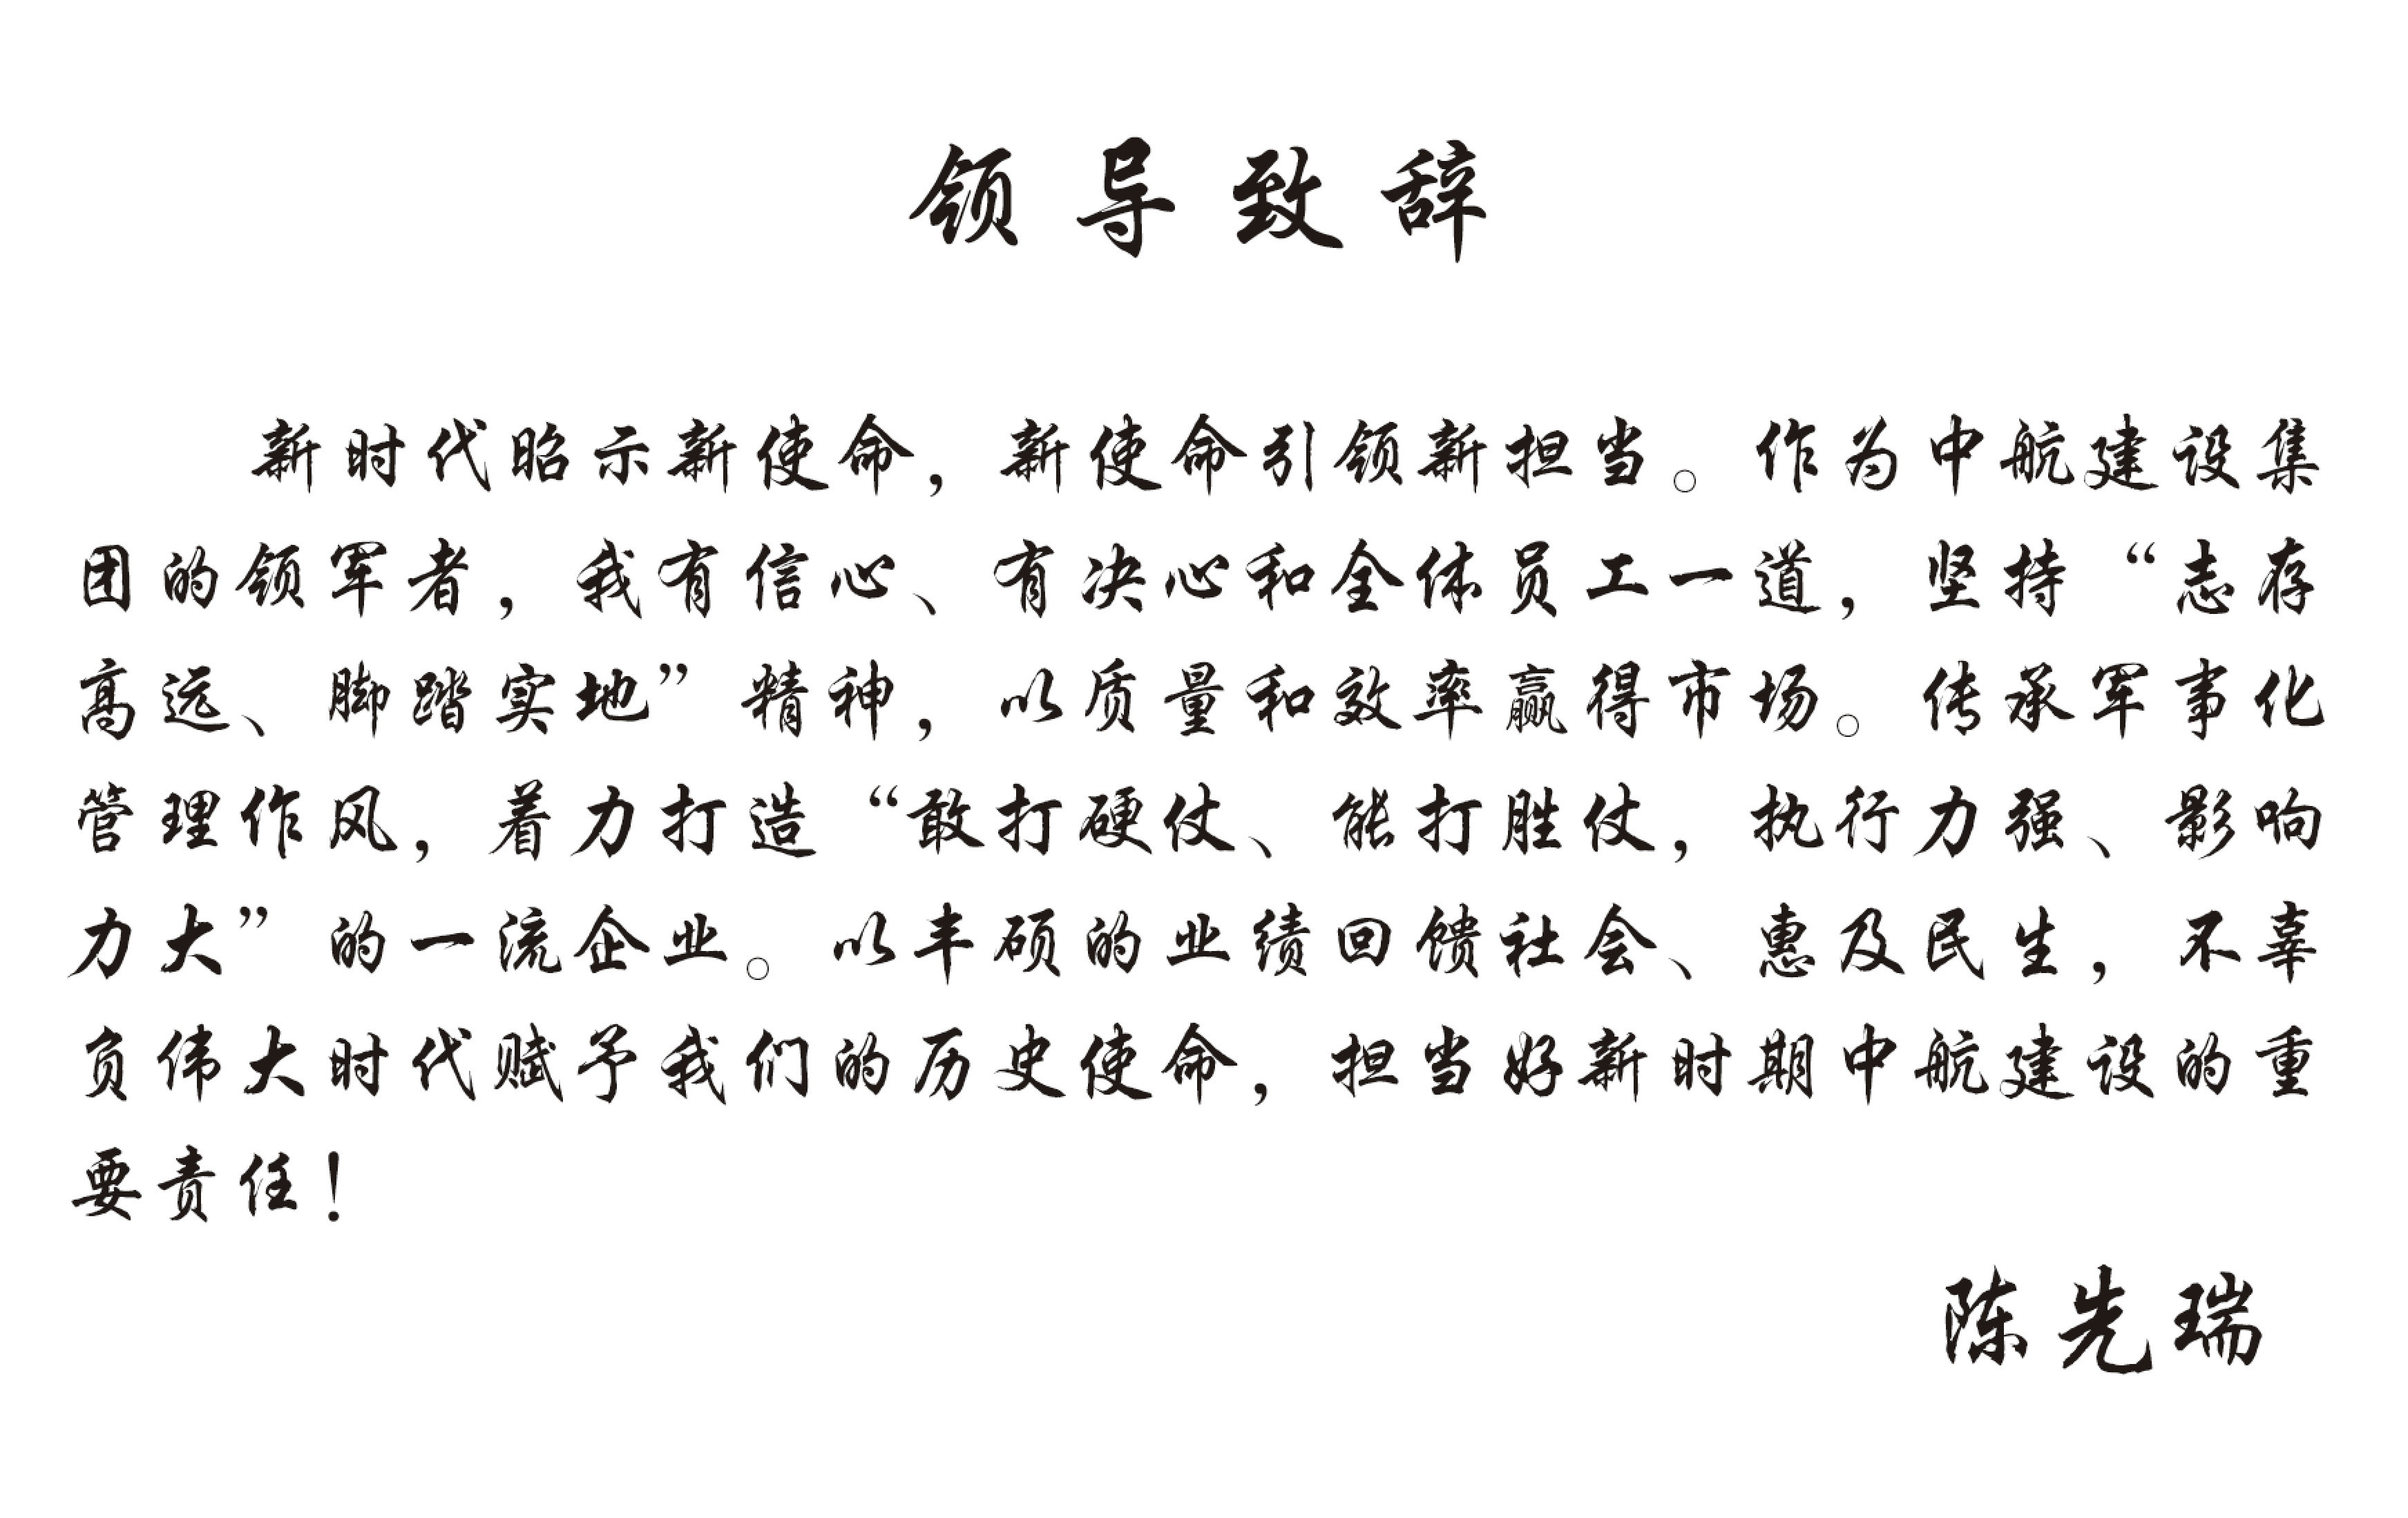 领导致辞
新时代昭示新使命，新使命引领新担当。作为中航建设集
团的领军者，我有信心、有决心和全体员工一道，坚持“志存
高远、脚踏实地”精神，以质量和效率赢得市场。传承军事化
管理作风，着力打造“敢打硬仗、能打胜仗，执行力强、影响
力大”的一流企业。以丰硕的业绩回馈社会、惠及民生，不辜
负伟大时代赋予我们的历史使命，担当好新时期中航建设的重
要责任！
陈先瑞